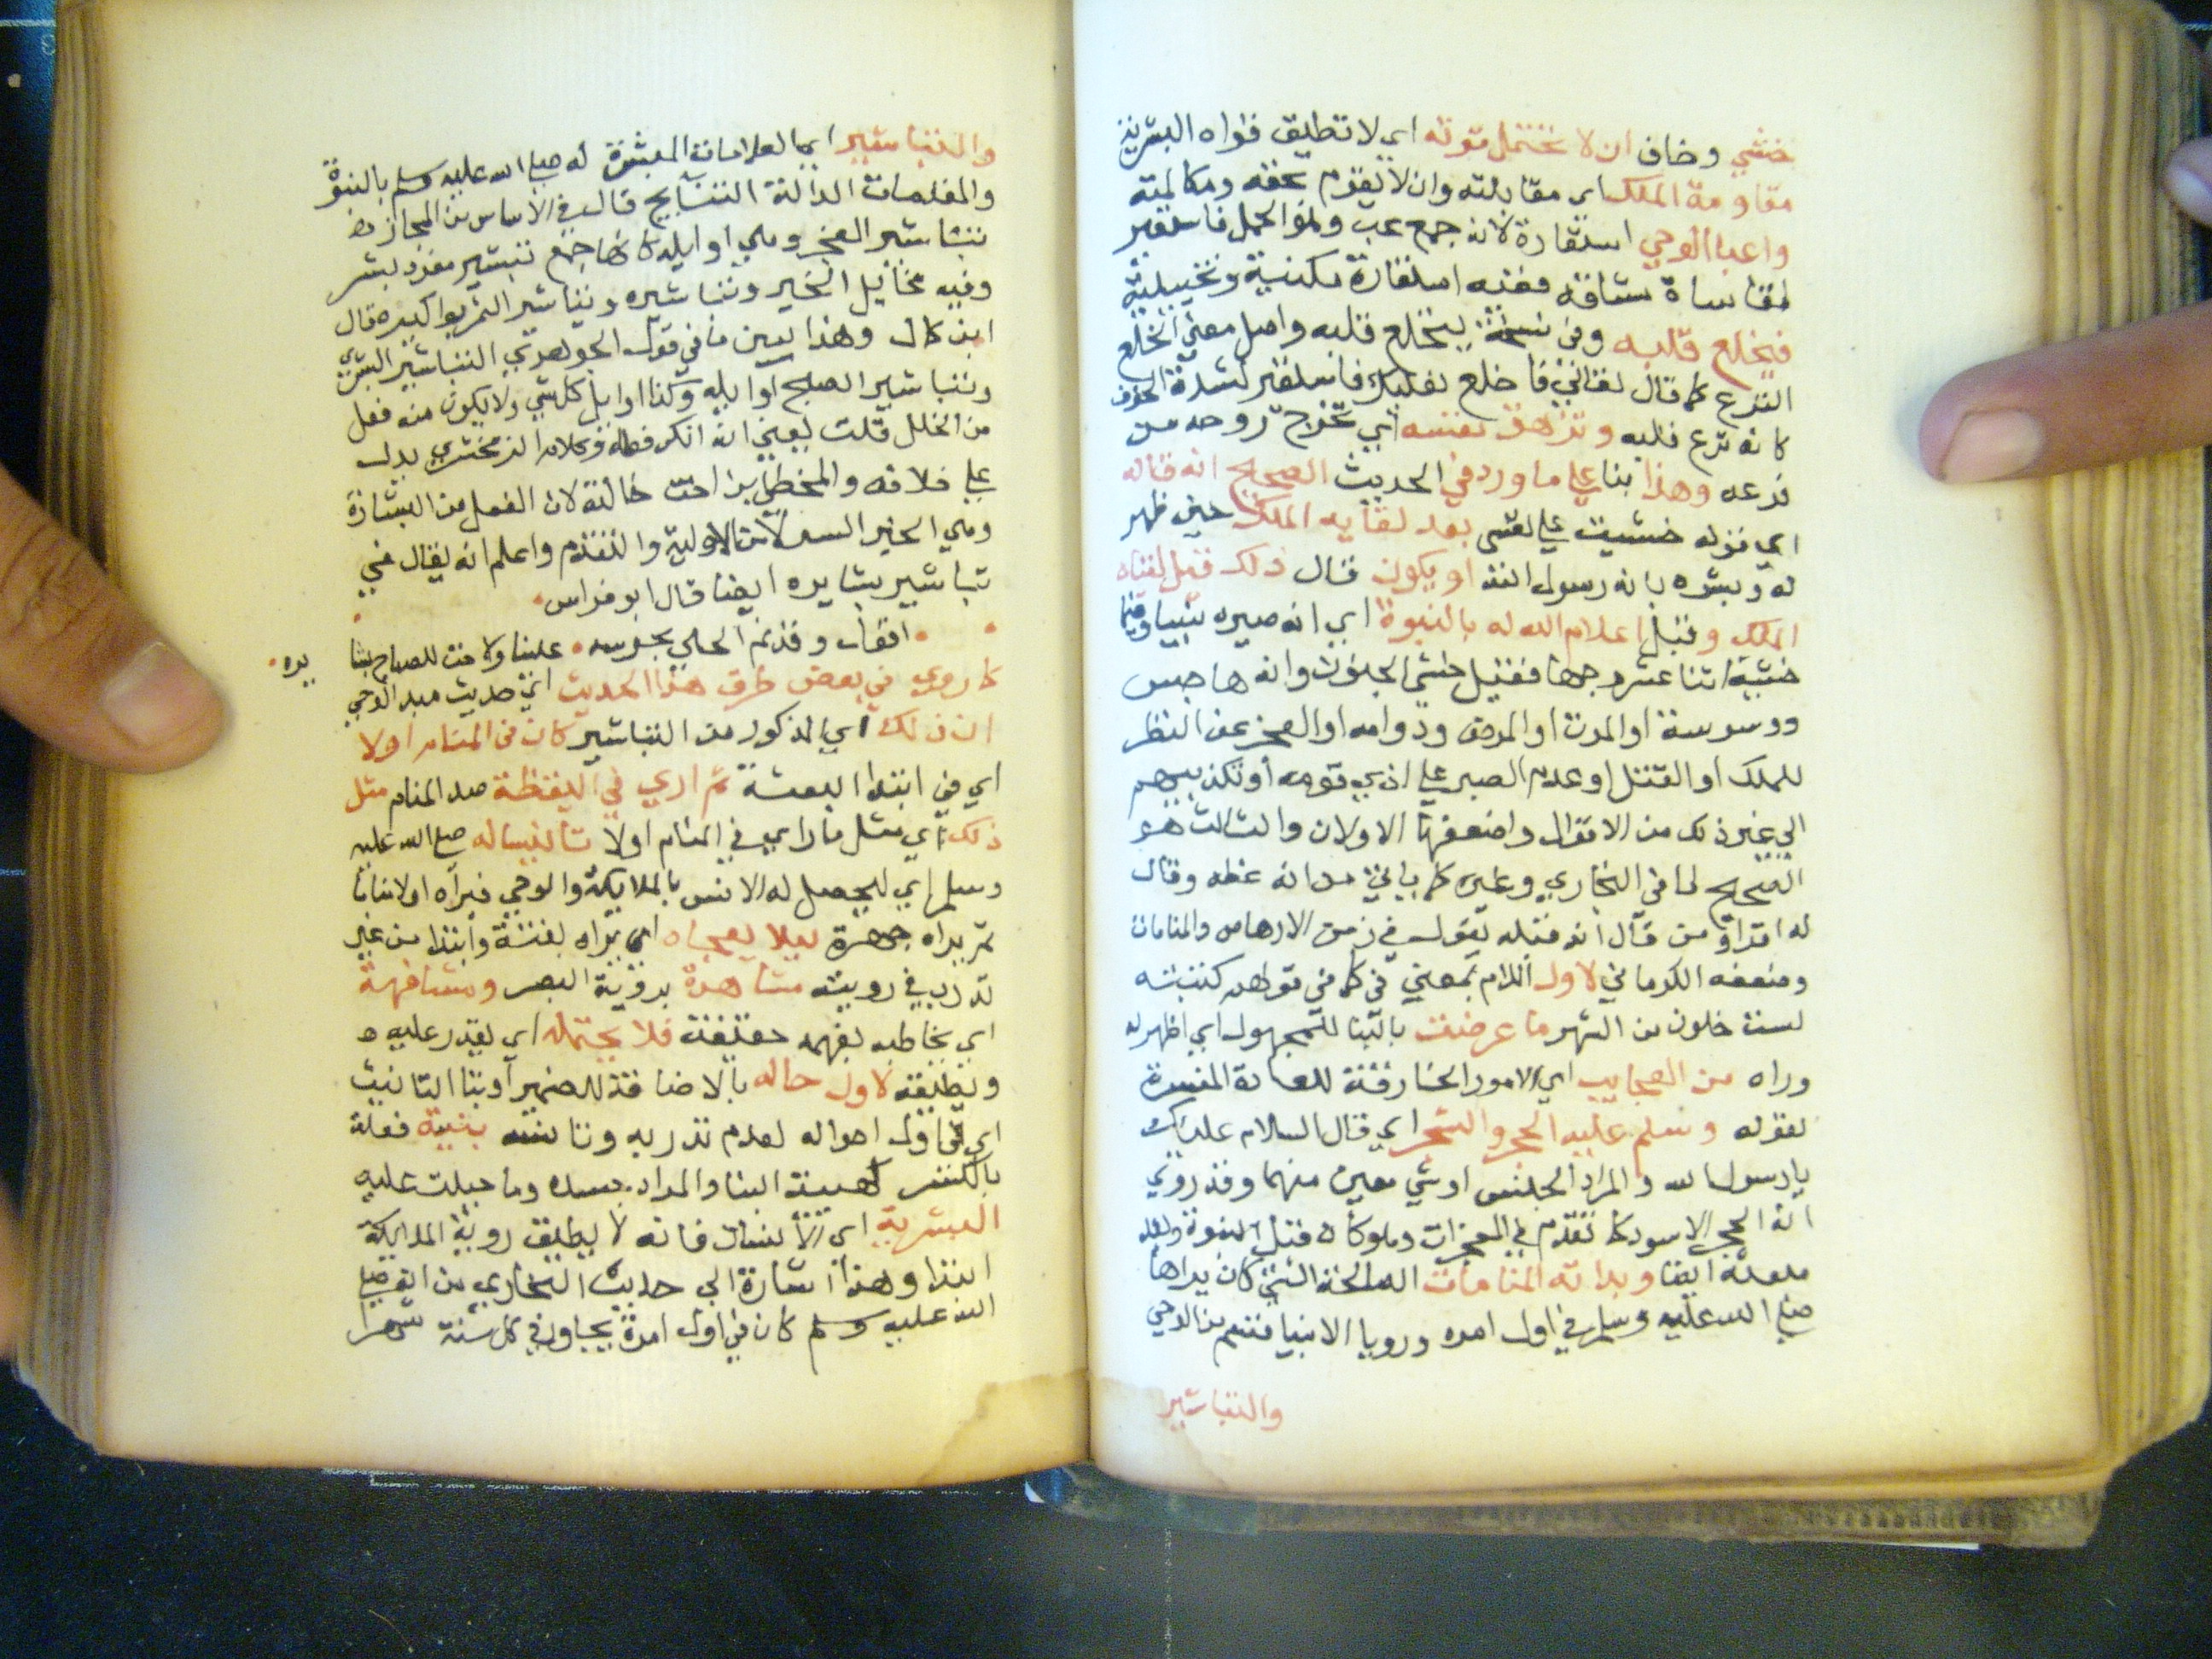 خشي وخاف ان لا تحتمل قوته اي لا تطيق قواه البشرية
مقاومة الملك اي مقابلته وان لا يقوم بحقه ومكالمته
واعبا الوحي استعارة لانه جمع عب وهو الحمل فاستعير
لمقاساة مشاقه ففيه استعارة مكنية وتخييلية
فيخلع قلبه وفي نسخة لينخلع قلبه واصل معني الخلع
النزع كما قال تعالي فاخلع نعليك فاستعير لشدة الخوف
كانه نزع قلبه وتزهق نفسه اي تخرج روحه من
فزعه وهذا بنا علي ما ورد في الحديث الصحيح انه قاله
اي قوله خشيت علي نفسي بعد لقايه الملك حين ظهر
له وبشره بانه رسول الله او يكون قال ذلك قبل لقياه
الملك وقبل اعلام الله له بالنبوة اي انه صيره نبيا وفيما
خشيه اثنا عشر وجها فقيل خشي الجنون وانه هاجس
ووسوسة او الموت او المرض ودوامه او العجز عن النظر
للملك او القتل او عدم الصبر علي اذي قومه او تكذيبهم
الي غير ذلك من الاقوال واضعفها الاولان والثالث هو
الصحيح لما في البخاري وغيره كما ياتي من انه غطه وقال
له اقرا ومن قال انه قبله يقول في زمن الارهاص والمنامات
وضعفه الكرماني لاول اللام بمعني في كما في قولهم كتبته
لست خلون من الشهر ما عرضت بالبنا للمجهول اي اظهر له
وراه من العجايب اي الامور الخارقة للعادة المفسرة
بقوله وسلم عليه الحجر والشجر اي قال السلام عليك
يا رسول الله والمراد الجنس او شي معين منهما وقد روي
انه الحجر الاسود كما تقدم في المعجزات وهو كان قبل النبوة وبعد
بعده ايضا وبداته المنامات الصالحة التي كان يراها
صلي الله عليه وسلم في اول امره ورويا الانبيا قسم من الوحي
والتباشير
والتباشير اي العلامات المبشرة له صلي الله عليه وسلم بالنبوة
والمقدمات الدالة النتايج قال في الاساس من المجاز فيه
تباشير الفجر وهي اوايله كانها جمع تبشير مفرد بشر
وفيه مخايل الخير وتباشيره وتباشير الثمر بواكيره قال
ابن كمال وهذا يبين ما في قول الجوهري التباشير البشري
وتباشير الصبح اوايله وكذا اوايل كل شي ولا يكون منه فعل
من الخلل قلت يعني انه انكر فعله وكلام الزمخشري يدل
علي خلافه والمخطي بن اخت خالته لان الفعل من البشارة
وهي الخبر السر لا من الاولية والتقدم واعلم انه يقال في
تباشير بشايره ايضا قال ابو فراس
اقول وقد نم الحلي بجرسه علينا ولاحت للصباح بشا يره
كما روي في بعض طرق هذا الحديث اي حديث مبدا الوحي
ان ذلك اي المذكور من التباشير كان في المنام اولا
اي في ابتدا البعثة ثم اري في اليقظة ضد المنام مثل
ذلك اي مثل ما راي في المنام اولا تانيسا له صلي الله عليه
وسلم اي ليحصل له الانس بالملايكة والوحي فيراه اولا مناما
ثم يراه جهرة ليلا يفجاه اي يراه بغتة وابتدا من غير
تدرب في رويته مشاهدة برؤية البصر ومشافهة
اي يخاطبه بفهمه حقيقة فلا يحتمله اي يقدر عليه
ويطيقه لاول حاله بالاضافة للضمير او بتا التانيث
اي في اول احواله لعدم تدربه وتانسه بنية فعلة
بالكسر كهيئة البنا والمراد جسده وما جبلت عليه
البشرية اي الانسان فانه لا يطيق روية الملايكة
ابتدا وهذا اشارة الي حديث البخاري من انه صلي
الله عليه وسلم كان في اول امره يجاور في كل سنة شهرا